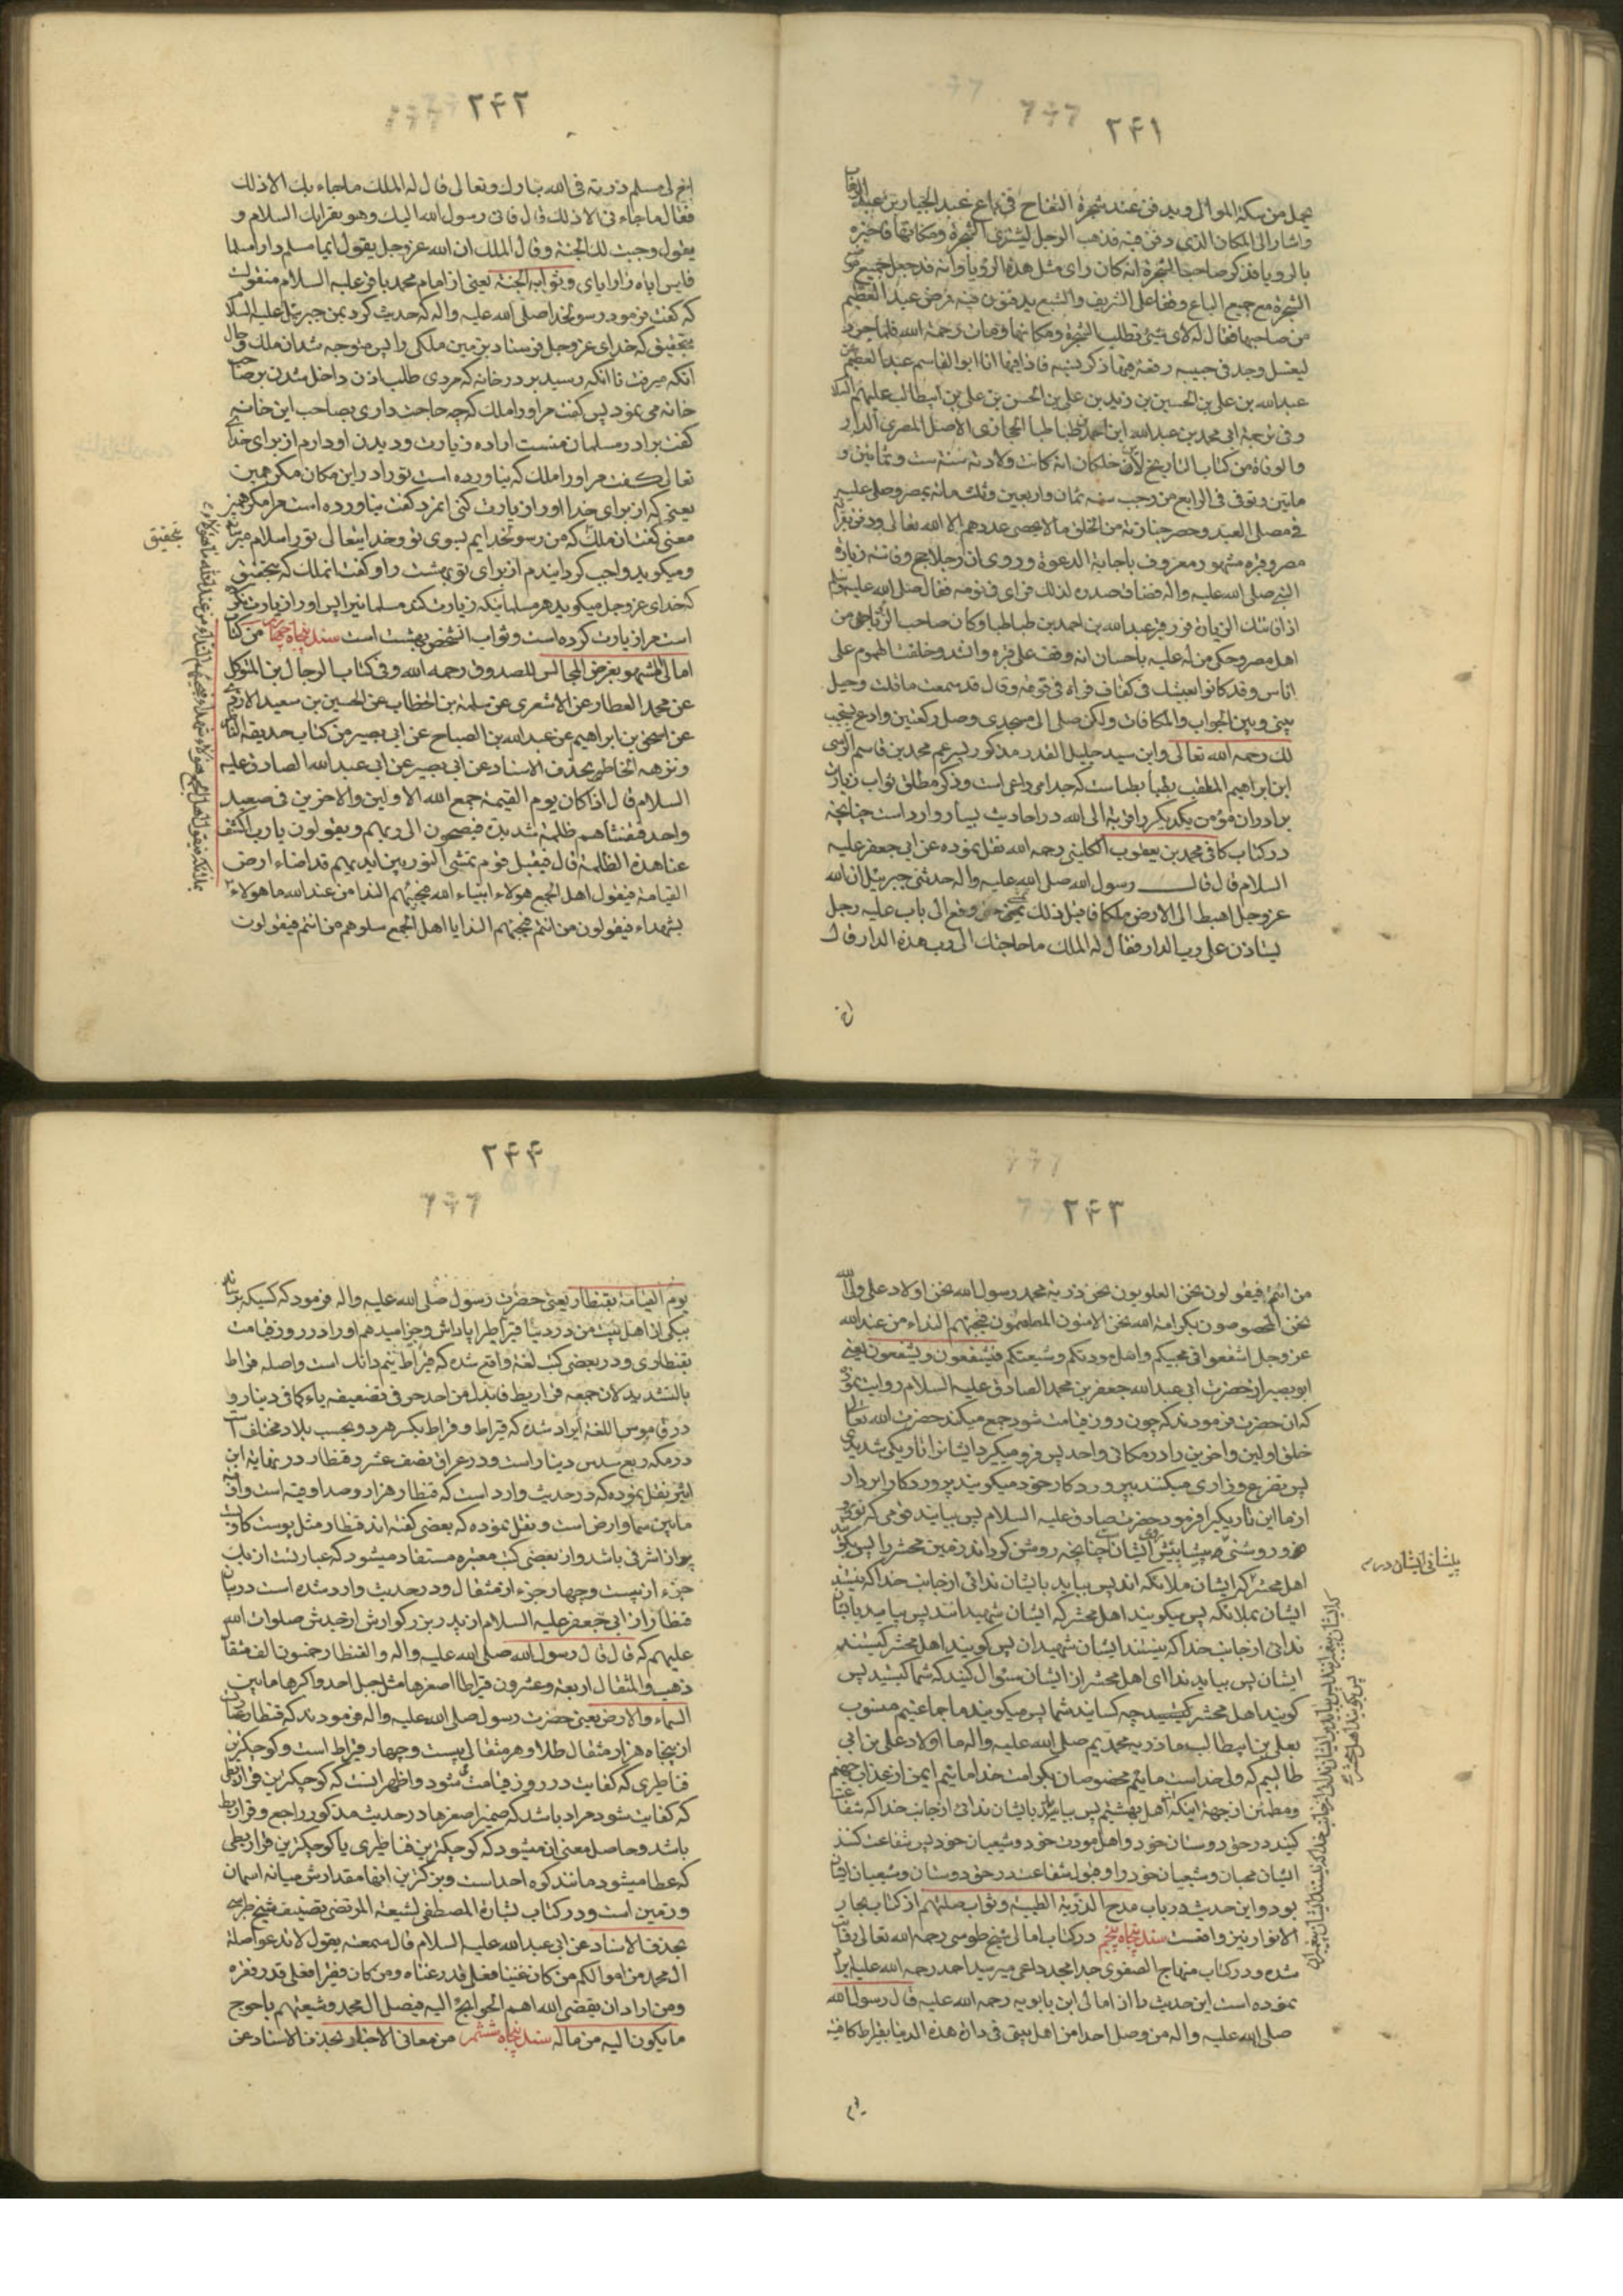 ۲۴۱
يحمل من سكة الموالي ويدفن عند شجرة التفاح في باغ عبد الجبار بن عبد الوهاب
واشار الى المكان الذي دفن فيه فذهب الرجل ليشتري الشجرة ومكانها فاخبره
بالرويا فذكر صاحب الشجرة انه كان راى مثل هذه الرؤيا وانه قد جعل جميع موضع
الشجرة مع جميع الباغ وقفا على الشريف والشيع يدفنون فيه فمرض عبد العظيم
من صاحبها فقال له لاي شيئ تطلب الشجرة ومكانها ومات رحمة الله فلما جرد
ليغسل وجد في جيبه رقعة فيها ذكر نسبه فاذا فيها انا ابو القاسم عبد العظيم بن
عبدالله بن علي بن الحسين بن زيد بن علي بن الحسن بن علي بن ابيطالب عليهم السلا
وفي ترجمة ابي محمد بن عبدالله ابن احمد بن طباطبا الحجازي الاصل المصري الدار
والوفاة من كتاب التاريخ لابن خلكان انه كانت ولادته سنة ست وثمانين و
مايتين وتوفي في الرابع من رجب سنة ثمان واربعين وثلثمائة بمصر وصلى عليه
في مصلى العيد وحضر جنازته من الخلق ما لا يحصى عددهم الا الله تعالى ودفن بقرا
مصر وقبره مشهور معروف باجابة الدعوة وروى ان رجلا حج وفاتته زيارة
النبي صلى الله عليه واله فضاق صدره لذلك فراى في نومه فقال صلى الله عليه وسلم
اذا فاتتك الزيارة فزر قبر عبدالله بن احمد بن طباطبا وكان صاحب الرؤيا من
اهل مصر وحكى من له عليه باحسان انه وقف على قبره وانشد وخلفت الهموم على
اناس وقد كانوا بعيشك في كفاف فراه في نومه وقال قد سمعت ما قلت وحيل
بيني وبين الجواب والمكافات ولكن صل الى مسجدي وصل ركعتين وادع يستجب
لك رحمه الله تعالى واين سيد جليل القدر مذكور پسر عم محمد بن قاسم الرسى
ابن ابراهيم الملقب بطباطباست كه جد امي داعى است وذكر مطلق ثواب زيارت
برادران مؤمن يكديكر را قربة الى الله در احاديث بسيار وارد است چنانچه
در كتاب كافى محمد بن يعقوب الكليني رحمه الله نقل نموده عن ابي جعفر عليه
السلام قال قال رسول الله صلى الله عليه واله حدثني جبرئيل ان الله
عز وجل اهبط الى الارض ملكا فاقبل ذلك يمشي حتى وقع الى باب عليه رجل
يستاذن على رب الدار فقال له الملك ما حاجتك الى رب هذه الدار قال
اخ
۲۴۲
اخ لى مسلم زرته في الله تبارك وتعالى قال له الملك ما جاء بك الا ذلك
فقال ما جاء بي الا ذلك قال فاني رسول الله اليك وهو يقرايك السلام و
يقول وجبت لك الجنة وقال الملك ان الله عز وجل يقول ايما مسلم زار مسلما
فليس اياه زار اياي و ثوابه الجنة يعنى از امام محمد باقر عليه السلام منقولست
كه كفت فرمود رسولخدا صلى الله عليه واله كه حديث كرد بمن جبرئيل عليه السلا
بتحقيق كه خداى عز وجل فرستاد بزمين ملكى را پس متوجه شد ان ملك و حال
آنكه ميرفت تا انكه رسيد بر در خانه كه مردى طلب اذن داخل شدن بر صاحب
خانه مى نمود پس كفت مر او را ملك كه چه حاجت دارى بصاحب اين خانه
كفت برادر مسلمان منست اراده زيارت و ديدن او دارم از براى خداى
تعالى كفت مر او را ملك كه نياورده است تو را در اين مكان مكر همين
يعنى كه از براى خدا او را زيارت كنى انمرد كفت نياورده است مرا مكر همين
معنى كفت ان ملك كه من رسول خدايم بسوى تو و خدايتعالى تو را سلام ميرساند
و ميكويد واجب كردانيدم از براى تو بهشت را و كفت انملك كه بتحقيق
كه خداى عز وجل ميكويد هر مسلمانيكه زيارت كند مسلمانيرا پس او را زيارت نكرده
است مرا زيارت كرده است و ثواب انشخص بهشت است سند پنجاه چهارم من كتاب
امالى المشهور بعرض المجالس للصدوق رحمه الله وفى كتاب الرجال بن المتوكل
عن محمد العطار عن الاشعري عن سلمة بن الخطاب عن الحسين بن سعيد الازدي
عن اسحق بن ابراهيم عن عبدالله بن الصباح عن ابي بصير من كتاب حديقه الناظر
ونزهه الخاطر بحذف الاسناد عن ابي بصير عن ابي عبدالله الصادق عليه
السلام قال اذا كان يوم القيمة جمع الله الاولين والاخرين في صعيد
واحد فتغشاهم ظلمة شديدة فيضجون الى ربهم ويقولون يا رب اكشف
عنا هذه الظلمة قال فيقبل قوم تمشي النور بين ايديهم قد اضاء ارض
القيامة فيقول اهل الجمع هولاء انبياء الله فيجيبهم الندا من عند الله ما هولاء
بشهداء فيقولون من انتم فيجيبهم الندا يا اهل الجمع سلوهم من انتم فيقولون
بتحقيق
۲۴۳
من انتم فيقولون نحن العلويون نحن ذرية محمد رسول الله نحن اولاد على ولى الله
نحن المخصوصون بكرامة الله نحن الامنون المطمئنون فيجيبهم النداء من عند الله
عز وجل اشفعوا في محبيكم واهل مودتكم وشيعتكم فيشفعون ويشفعون يعنى
ابو بصير از حضرت ابى عبدالله جعفر بن محمد الصادق عليه السلام روايت نموده
كه ان حضرت فرمودند كه چون روز قيامت شود جمع ميكند حضرت الله تعالى
خلق اولين و اخرين را در مكانى واحد پس فرو ميكيرد ايشانرا تاريكى شديدى
پس تضرع و زارى ميكنند بپروردكار خود ميكويند پروردكارا بردار
از ما اين تاريكيرا فرمود حضرت صادق عليه السلام پس بيايند قومى كه نور
اهل محشر كه ايشان ملائكه اند پس بيايد بايشان ندائى از جانب خدا كه نيستند
ايشان ملائكه پس ميكويند اهل محشر كه ايشان شهيدانند پس بيايد بايشان
ندائى از جانب خدا كه نيستند ايشان شهيدان پس كويند اهل محشر كيستند
ايشان پس بيايد ندا اى اهل محشر از ايشان سئوال كنيد كه شما كيستيد پس
كويند اهل محشر كيستيد چه كسانيد شما پس ميكويند ما جماعتيم منسوب
بعلى بن ابيطالب ما ذريه محمديم صلى الله عليه واله ما اولاد على بن ابى
طالبيم كه ولى خداست مائيم مخصوصان بكرامت خدا مائيم ايمن از عذاب جهنم
ومطمئن از جهة اينكه اهل بهشتيم پس بيايد بايشان ندائى از جانب خدا كه شفاعت
كنيد در حق دوستان خود و اهل مودت خود و شيعيان خود پس شفاعت كنند
ايشان محبان و شيعيان خود را و قبول شفاعت در حق دوستان و شيعيان ايشان
بود و اين حديث در باب مدح الذرية الطيبة و ثواب صلتهم از كتاب بحار
الانوار نيز واقعست سند پنجاه پنجم در كتاب امالى شيخ طوسى رحمه الله تعالى روايت
شده و در كتاب منهاج الصفوى جد امجد داعى مير سيد احمد رحمه الله عليه ايراد
نموده است اين حديث را از امالى ابن بابويه رحمه الله عليه قال رسول الله
صلى الله عليه واله من وصل احدا من اهل بيتى فى دار هذه الدنيا بقيراط كافيته
پيشانى ايشان در
يوم
۲۴۴
يوم القيامة بقنطار يعنى حضرت رسول صلى الله عليه واله فرمود كه كسيكه برساند
بيكى از اهل بيت من در دنيا قيراطى را پاداش و جزا ميدهم او را در روز قيامت
بقنطارى و در بعضى كتب لغة واقع شده كه قيراط نيم دانك است واصله قراط
بالتشديد لان جمعه قراريط فابدل من احد حرفى تضعيفه ياء كما فى دينار و
در قاموس اللغة ايراد شده كه قيراط و قراط بكسر هر دو بحسب بلاد مختلف است
در مكه ربع سدس دينار است و در عراق نصف عشر و قنطار در نهايه ابن
اثير نقل نموده كه در حديث وارد است كه قنطار هزار و صد اوقيه است و اوقيه
ما بين سما و ارض است و نقل نموده كه بعضى كفته اند قنطار مثل پوست كاو
پر از اشرفى باشد و از بعضى كتب معتبره مستفاد ميشود كه عبارتست از يك
جزء از بيست و چهار جزء از مثقال و در حديث وارد شده است در بيان
قنطار از ابى جعفر عليه السلام از پدر بزركوارش از جدش صلوات الله
عليهم كه قال قال رسول الله صلى الله عليه واله والقنطار خمسون الف مثقال
ذهب والمثقال اربعة وعشرون قيراطا اصغرها مثل جبل احد واكبرها ما بين
السماء والارض يعنى حضرت رسول صلى الله عليه واله فرمودند كه قنطار
از پنجاه هزار مثقال طلا و هر مثقالى بيست و چهار قيراط است و كوچكترين
قناطيرى كه كفايت در روز قيامت شود و اظهر اينست كه كوچكترين قراريطى
كه كفايت شود مراد باشد كه ضمير اصغرها در حديث مذكور راجع و قراريط
باشد و حاصل معنى ان ميشود كه كوچكترين قناطيرى يا كوچكترين قراريطى
كه عطا ميشود مانند كوه احد است و بزركترين انها مقدارش ميانه اسمان
و زمين است و در كتاب بشارة المصطفى لشيعة المرتضى تصنيف شيخ طبرسى
بحذف الاسناد عن ابى عبدالله عليه السلام قال سمعته يقول لا تدعوا صلة
ال محمد من اموالكم من كان غنيا فعلى قدر غناه ومن كان فقيرا فعلى قدر فقره
ومن اراد ان يقضى الله اهم الحوايج اليه فليصل ال محمد وشيعتهم باحوج
ما يكون اليه من ماله سند پنجاه ششم من معانى الاخبار بحذف الاسناد عن